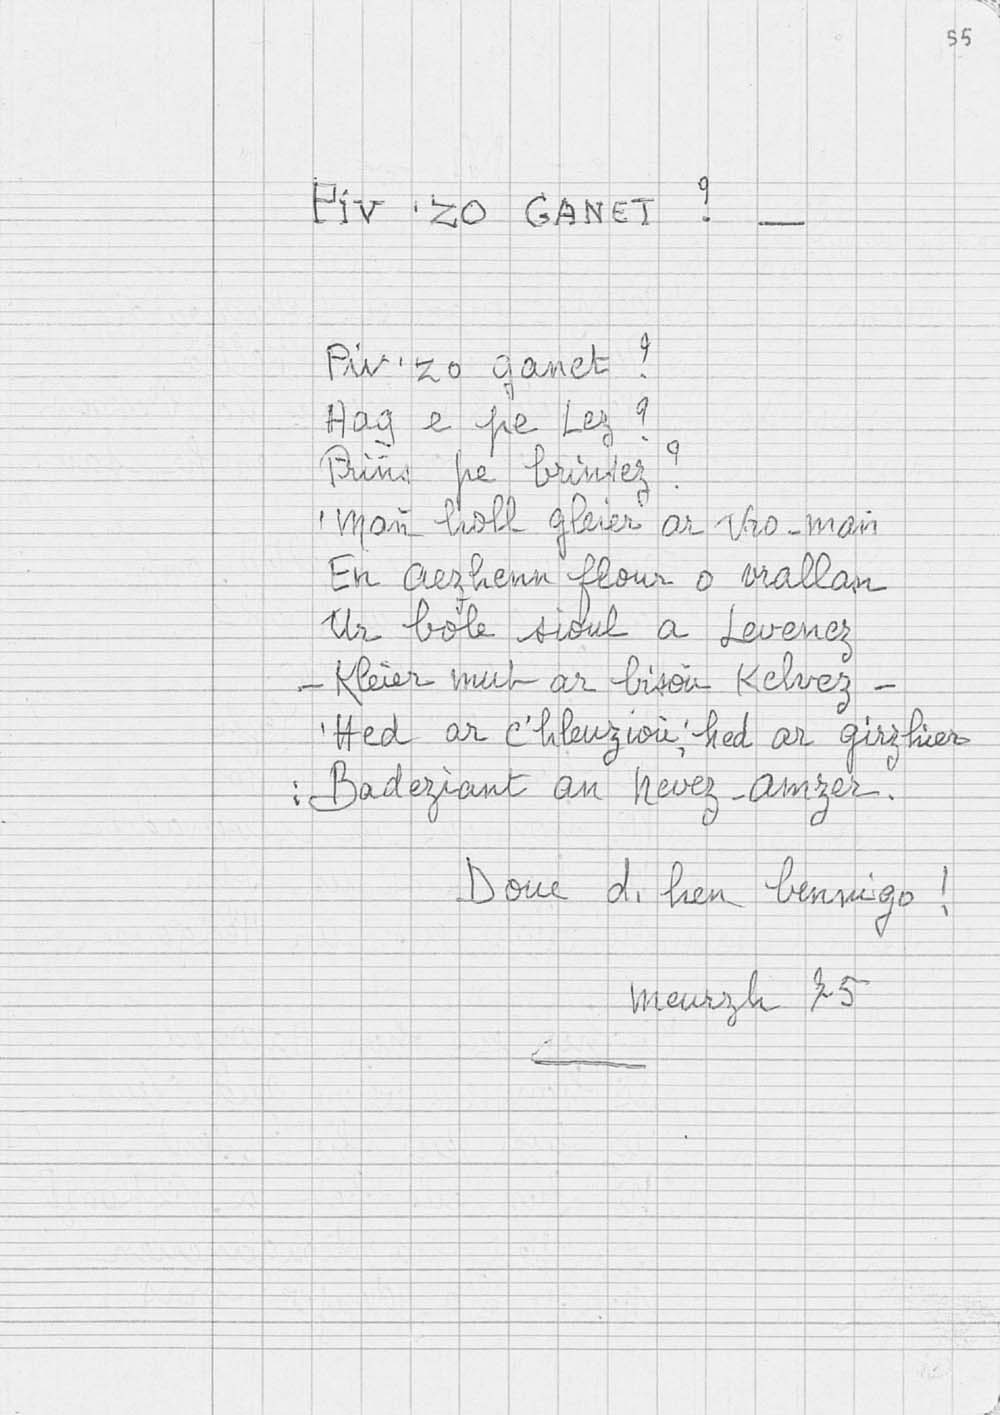 55
PIV 'ZO GANET ? _
Piv 'zo ganet ?
Hag e pe Lez ?
Priñs pe briñsez ?
'Mañ holl gleier ar Vro-mañ
En aezhenn flour o vrallañ
Ur bole sioul a Levenez
- Kleier mut ar bizoù Kelvez -
'Hed ar c'hleuzioù, 'hed ar girzhier
: Badeziant an Nevez-amzer.
Doue d. hen bennigo !
Meurzh 75